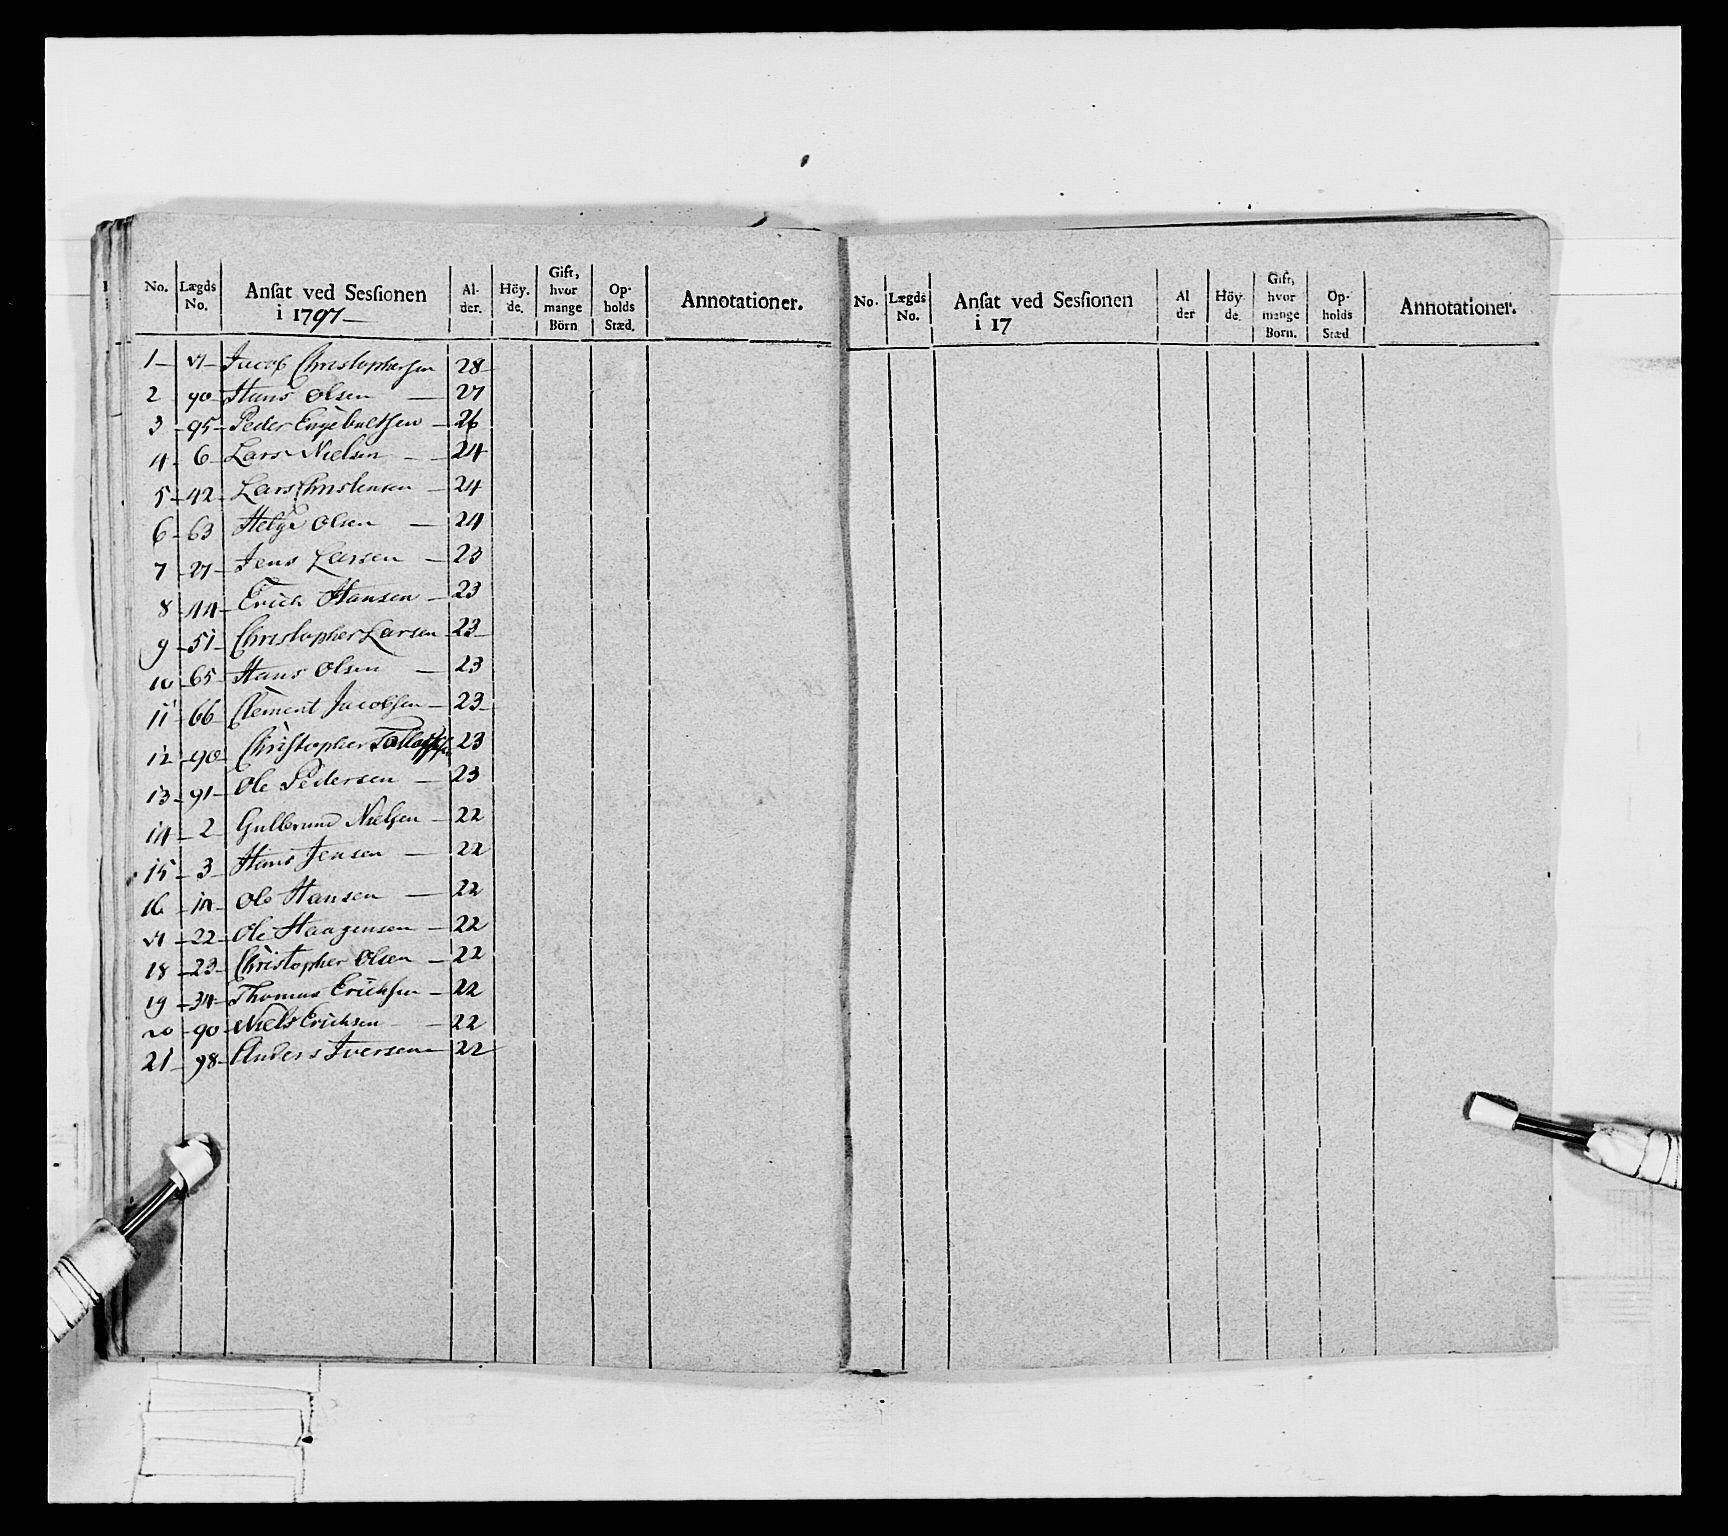 No. Lægds No. Ansat ved Sessionen i 1797 Al-der. Höy-de. Gift, hvor mange Börn Op-holds Stæd. Annotationer.
1 17 Jacob Christophersen 28
2 90 Hans Olsen 27
3 95 Peder Engebretsen 26
4 6 Lars Nielsen 24
5 42 Lars Christensen 24
6 63 Helge Olsen 24
7 27 Jens Larsen 23
8 44 Erich Hansen 23
9 51 Christopher Larsen 23
10 65 Hans Olsen 23
11 66 Clement Jacobsen 23
12 90 Christopher 23
13 91 Ole Pedersen 23
14 2 Gulbrand Nielsen 22
15 3 Hans Jensen 22
16 Ole Hansen 22
17 22 Ole Haagensen 22
18 23 Christopher Olsen 22
19 34 Thomas Erichsen 22
20 90 Niels Erichsen 22
21 98 Anders Iversen 22
No. Lægds No. Ansat ved Sessionen i 17 Al der Höy de. Gift, hvor mange Born. Op-holds Stæd Annotationer.